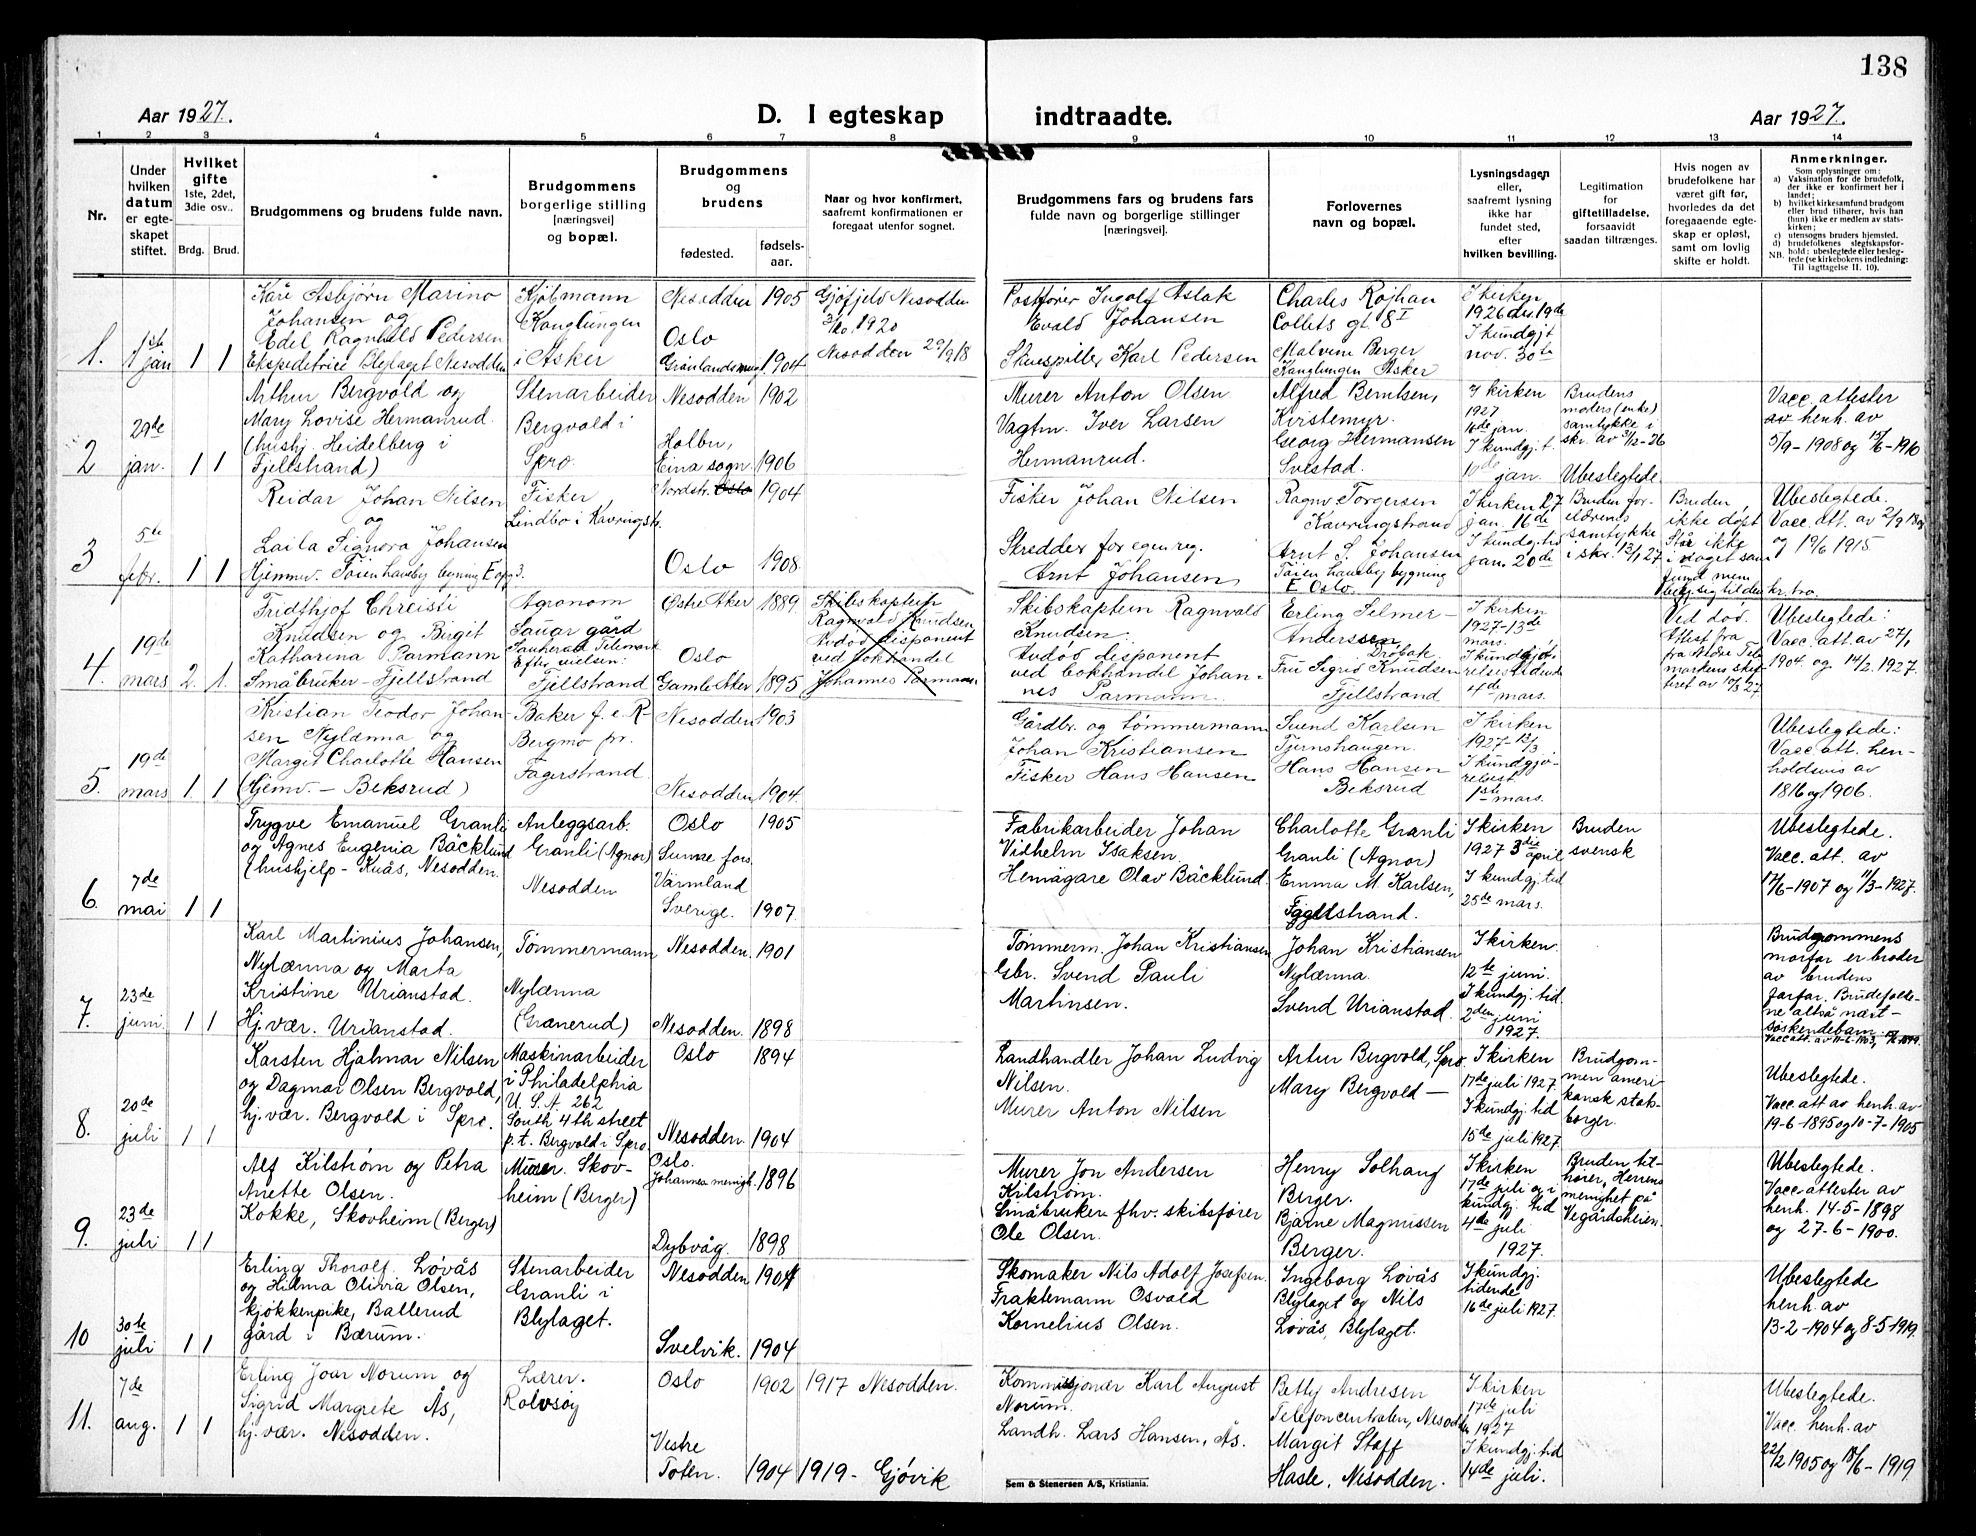 138
Aar 1927.
D. I egteskap indtraadte.
Aar 1927.
1 2 3 4 5 6 7 8 9 10 11 12 13 14
Nr.
Under hvilken datum er egteskapet stiftet.
Hvilket gifte
1ste, 2det, 3die osv..
Brdg. Brud.
Brudgommens og brudens fulde navn.
Brudgommens borgerlige stilling [næringsvei] og bopæl.
Brudgommens og brudens
fødested. fødselsaar.
Naar og hvor konfirmert, saafremt konfirmationen er foregaat utenfor sognet.
Brudgommens fars og brudens fars fulde navn og borgerlige stillinger [næringsvei].
Forlovernes navn og bopæl.
Lysningsdagen eller, saafremt lysning ikke har fundet sted, efter hvilken bevilling.
Legitimation for giftetilladelse, forsaavidt saadan tiltrænges.
Hvis nogen av brudefolkene har været gift før, hvorledes da det foregaaende egteskap er opløst, samt om lovlig skifte er holdt.
Anmerkninger.
Som oplysninger om:
a) Vaksination for de brudefolk, der ikke er konfirmert her i landet;
b) hvilket kirkesamfund brudgom eller brud tilhører, hvis han (hun) ikke er medlem av statskirken;
c) utensogns bruders hjemsted.
d) brudefolkenes slegtskapsforhold: ubeslegtede eller beslegtede (se kirkebokens indledning:
NB. Til iagttagelse II. 10).
1. 1ste jan 1 1
Kåre Asbjørn Marino
Johansen og
Edel Ragnhild Pedersen
Ekspeditrice Blylaget Nesodden
Kjøbmann
Konglungen
i Asker
Nesodden 1905
Oslo
Grønlands menigh. 1904
Gjøfjeld Nesodden
3/10. 1920
Nesodden 29/9 18
Postfører Ingolf Aslak
Evald Johansen
Skuespiller Karl Pedersen
Charles Røjhan
Collets gt. 8 I
Malvine Berger
Konglungen Asker
I kirken
1926 des. 19de
I kundgj.t
nov. 30te
2 29de jan. 1 1
Arthur Bergvold og
Mary Lovise Hermanrud.
(hushj. Heidelberg i
Fjellstrand)
Stenarbeider
Bergvold i
Spro.
Nesodden 1902
Holbu,
Eina sogn. 1906
Murer Anton Olsen
Vagtm. Iver Larsen
Hermanrud.
Alfred Berntsen,
Kirstemyr.
Georg Hermansen
Svestad.
I kirken
1927
16de jan.
I kundgj.t.
jan.
Brudens
moders (enke)
samtykke i
skr. av 3/12-26
Ubeslegtede
Vacc. attester
av henh. av
5/9-1908 og 15/6-1910
3 5te febr. 1 1
Reidar Johan Nilsen
og
Laila Signora Johansen
Hjemmev. Tøien haveby bygning E opg 3.
Fisker
Lindbo i Kavringstr.
Nordstr. Oslo 1904
Oslo 1908
Fisker Johan Nilsen
Skredder for egen reg.
Arnt Johansen
Ragnv Torgersen
Kavringstrand
Arnt S. Johansen
Tøien haveby bygning
E Oslo.
I kirken 27
jan. 16de
I kundg.tid
jan. 20de
Bruden for-
eldrenes
samtykke
i skr. 13/1 27
Bruden
ikke døpt
Står ikke
i noget sam
fund men
Ubeslegtede.
Vacc. att. av 2/9
og 19/6 1915
kr. tro.
4. 19de mars 2. 1.
Fridthjof Chreisti
Knudsen og Birgit
Katharina Parmann
Småbruker - Fjellstrand
Agronom
Sauar gård
Sauherad Telemark
Efter vielsen:
Fjellstrand
Østre Aker 1889
Oslo
Gamle Aker 1895
Skibskaptein
Ragnvald Knudsen
Avdød disponent
ved bokhandel
Johannes Parmann
Skibskaptein Ragnvald
Knudsen.
Avdød disponent
ved bokhandel Johan-
nes Parmann.
Erling Selmer -
Anderssen
Drøbak
Fru Sigrid Knudsen
Fjellstrand
I kirken
1927-13de
mars.
I kundgjø-
relsestidende
4de mars.
Ved død.
Attest fra
fra Andre Tele
markens skif-
teret av 10/3 27
Ubeslegtede:
Vacc. att av 27/1
1904 og 14/2. 1927.
5. 19de mars 1. 1
Kristian Teodor Johan-
sen Nylænna og
Margit Charlotte Hansen
(Hjemv. - Beksrud)
Baker f. e. R-
Bergmo pr.
Fagerstrand.
Nesodden 1903
Nesodden 1904.
Gårdbr. og tømmermann
Johan Kristiansen
Fisker Hans Hansen
Svend Karlsen
Tjernshaugen.
Hans Hansen
Beksrud
I kirken
1927-13/3.
I kundgjø-
relsest.
1ste mars.
Ubeslegtede:
Vacc. att. hen-
holdsvis av
1816 og 1906.
6. 7de mai 1 1
Trygve Emanuel Granli
og Agnes Eugenia Bäcklund
(hushjelp - Kuås, Nesodden.
Anleggsarb.
Granli (Agnor)
Nesodden
Oslo 1905
Sunne fors.
Värmland
Sverige. 1907.
Fabrikarbeider Johan
Vidhelm Isaksen.
Hemägare Olav Bäcklund.
Charlotte Granli
Granli (Agnor)
Emma M. Karlsen,
Fjellstrand.
I kirken
1927 3die april
I kundgj. tid
25de mars.
Bruden
svensk
Ubeslegtede.
Vacc. att. av
17/6-1907 og 11/3-1927.
7. 23de juni. 1 1
Karl Martinius Johansen,
Nylænna og Marta
Kristine Urianstad.
Hj. vær. Urianstad.
Tømmermann
Nylænna
(Granerud)
Nesodden. 1901
Nesodden. 1898
Tømmerm. Johan Kristiansen
Gbr. Svend Pauli
Martinsen.
Johan Kristiansen
Nylænna.
Svend Urianstad.
I kirken.
12te juni.
I kundgj. tid.
2den juni
1927.
Brudgommens
morfar er broder
av brudens
farfar. Brudefolke-
ne altså næst-
søskendebarn.
8. 20de juli 1 1
Karsten Hjalmar Nilsen
og Dagmar Olsen Bergvold,
hj. vær. Bergvold i Spro.
Maskinarbeider
i Philadelphia
U. S. A. 262
South 4th street
p.t. Bergvold i Spro
Oslo 1894
Nesodden. 1904
Landhandler Johan Ludvig
Nilsen.
Murer Anton Nilsen
Artur Bergvold, Spro.
Mary Bergvold -
I kirken
17de juli 1927
I kundgj. tid
15de juli 1927.
Brudgom-
men ameri-
kansk stats-
borger.
Ubeslegtede.
Vacc. att av henh. av
19-6-1895 og 10-7-1905
9. 23de juli 1 1
Alf Kilstrøm og Petra
Anette Olsen.
Kokke, Skovheim (Berger)
Murer. Skov-
heim (Berger)
Oslo.
Johannes menigh. 1896
Dybvåg. 1898
Murer Jon Andersen
Kilstrøm.
Småbruker fhv. skibsfører
Ole Olsen.
Henry Solhaug
Berger.
Bjarne Magnussen
Berger.
I kirken
17de juli og i
kundgj. tid
4de juli
1927.
Bruden til-
hører, Herrens
menighet på
Vegårdsheien.
Ubeslegtede.
Vacc. attester av
henh. 14-5-1898
og 27-6-1900.
10 30te juli 1 1
Erling Thorolf Løvås
og Hilma Olivia Olsen,
kjøkkenpike, Ballerud
gård i Bærum.
Stenarbeider
Granli i
Blylaget.
Nesodden 1904
Svelvik. 1904
Skomaker Nils Adolf Josefsen.
Fraktemann Osvald
Kornelius Olsen.
Ingeborg Løvås
Blylaget og Nils
Løvås, Blylaget.
I kundgj.
tidende
16de juli 1927.
Ubeslegtede
henh av
13-2-1904 og 8-5-1919.
11. 7de aug. 1 1
Erling Joar Norum og
Sigrid Margrete Ås,
hj. vær. Nesodden.
Lærer.
Rolvsøy
Oslo 1902
Vestre
Toten. 1904
1917 Nesodden.
1919 - Gjøvik
Kommisjonær Karl August
Norum.
Landh. Lars Hansen, Ås.
Betty Andresen
Telefoncentralen, Nesodden
Margit Staff
Hasle, Nesodden.
I kirken
17de juli
1927
I kundgj. tid
14de juli.
Ubeslegtede.
Vacc. henh. av
22/2 1905 og 18/6-1919
Sem & Stenersen A/S, Kristiania.